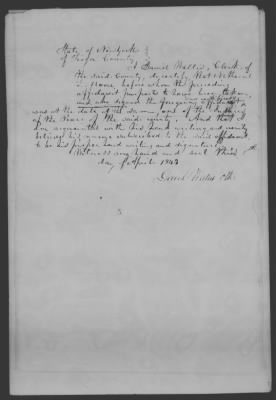 State of New York }
County }
I David Wallis, Clerk of
the said County, do certify that Nathan
S. before whom the preceding
affidavit purports to have been taken,
and who signed the foregoing affidavit
was at the date of the same one of the Justices
of the Peace of the said county. And that I
am acquainted with his hand writing and verily
believe his name subscribed to the said affidavit
to be his proper hand writing and signature.
Witness my hand and seal this
day of April 1843
David Wallis Clk